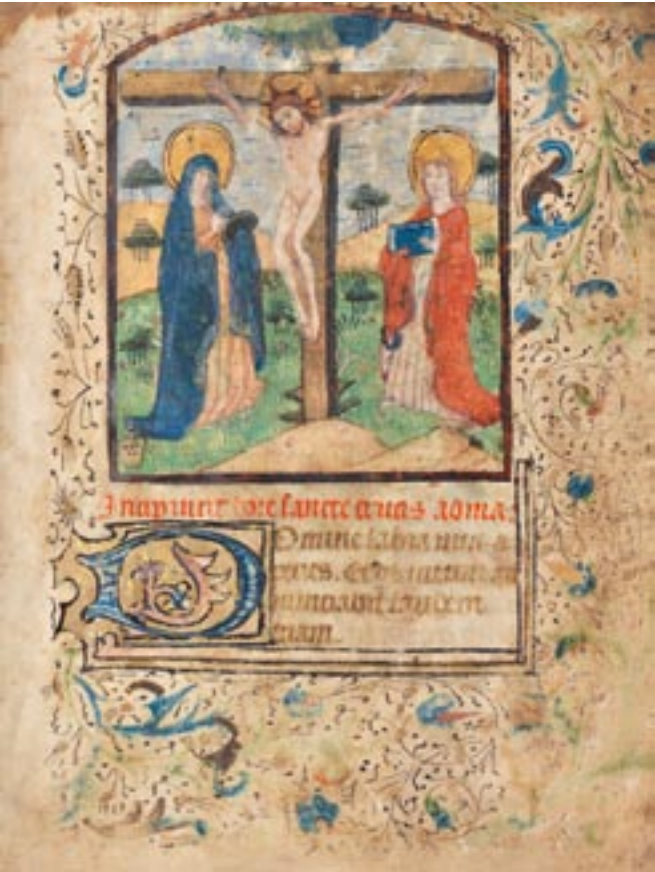 Incipiunt hore sancte crucis ad ma
DOmine labia mea a
peries. Et os meum an
nunciabit laudem
tuam.